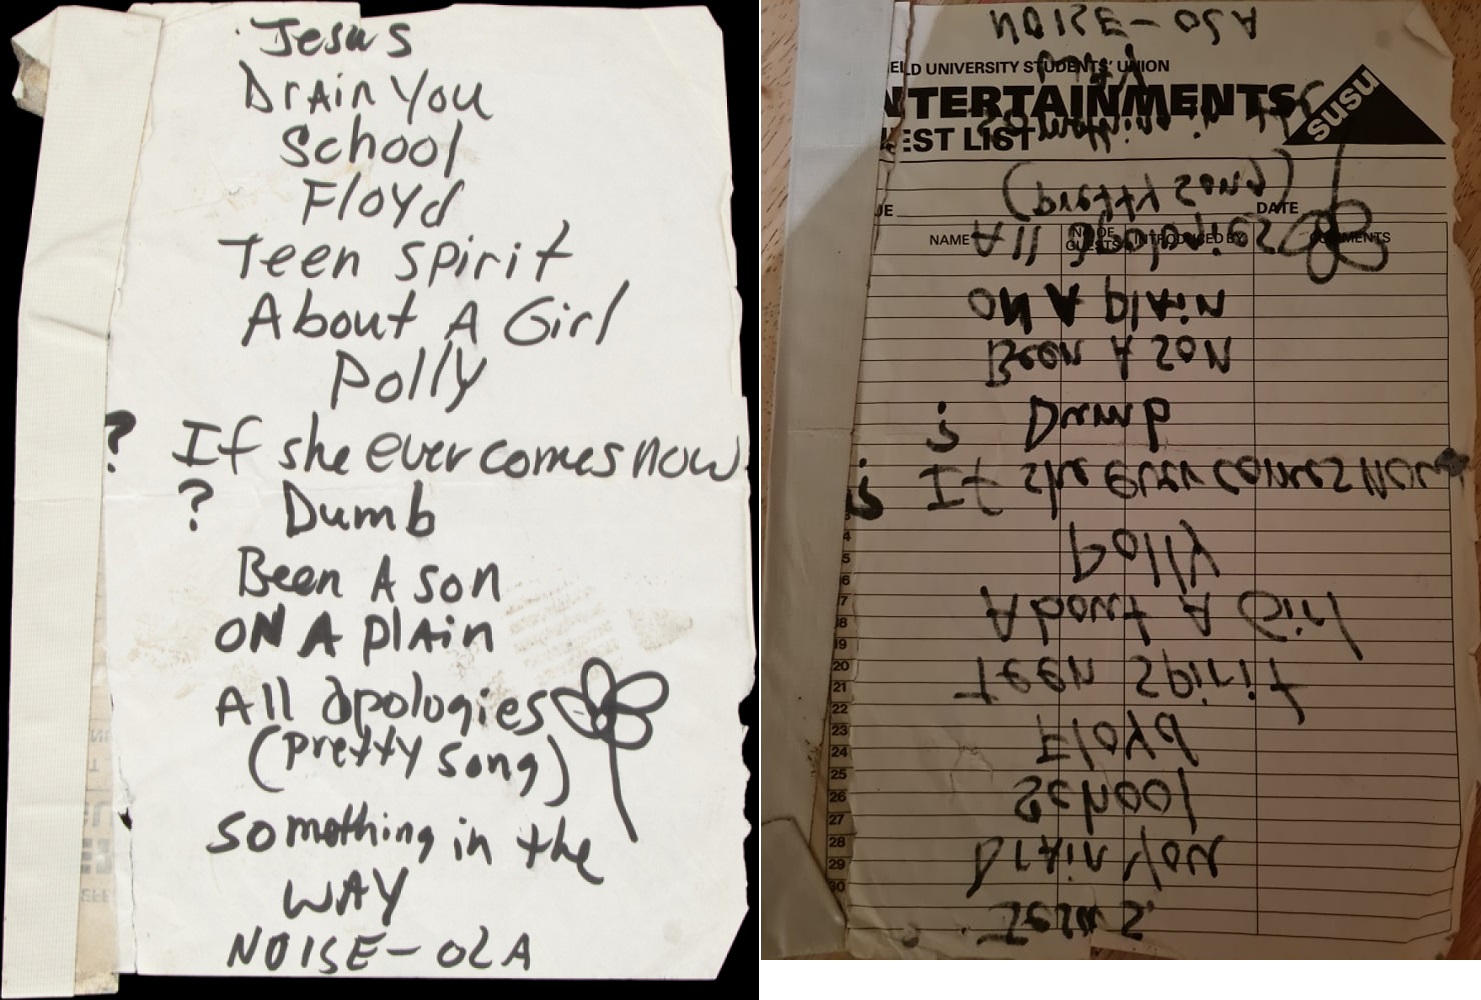 Jesus
Drain You
School
Floyd
Teen Spirit
About A Girl
Polly
? If she ever comes now
? Dumb
Been A son
ON A plain
All apologies
(pretty song)
Something in the
WAY
NOISE - OLA
ELD UNIVERSITY STUDENTS' UNION
NTERTAINMENTS
EST LIST
susu
UE DATE
NAME NO OF GUESTS INTRODUCED BY COMMENTS
4
5
6
7
18
19
20
21
22
23
24
25
26
27
28
29
30